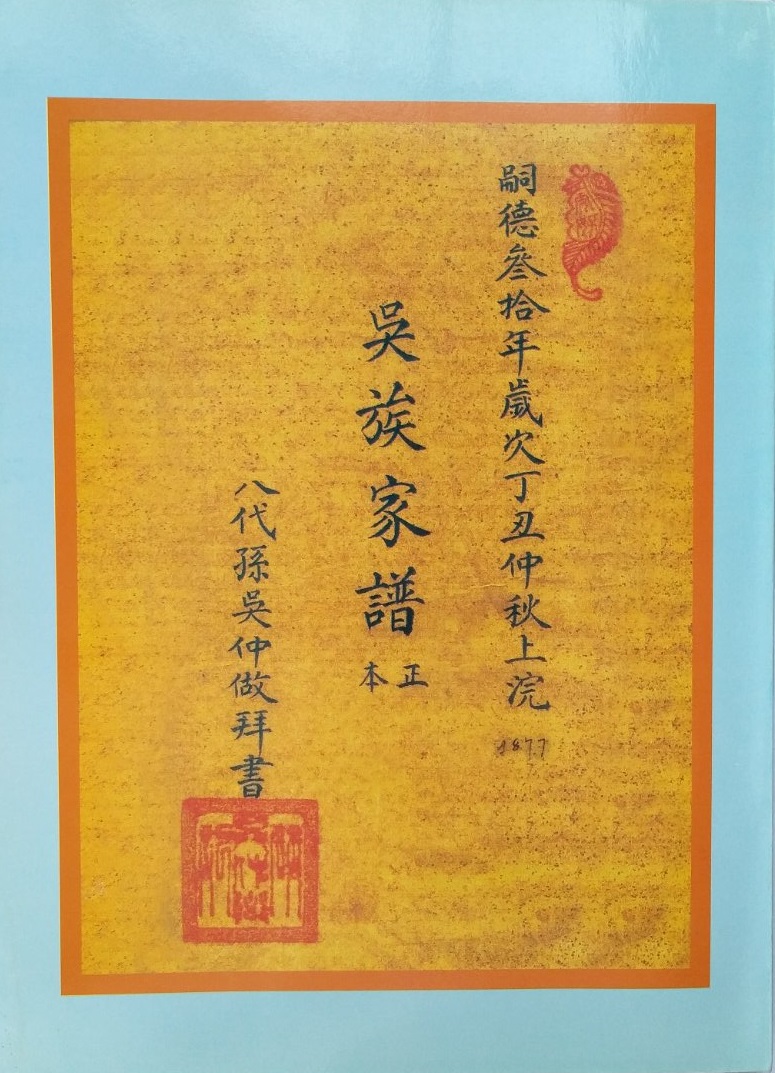 嗣德叄拾年歲次丁丑仲秋上浣
1877
吳族家譜
正本
八代孫吳仲做拜書